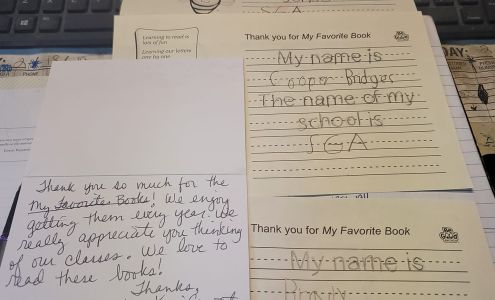 Learning to read is
lots of fun
Learning our letters
one by one
Thank you for My Favorite Book
My name is
Cooper Bridges
The name of my
school is
SGA
Thank you so much for the
My Favorites Books! We enjoy
getting them every year. We
really appreciate you thinking
of our classes. We love to
read these books!
Thanks,
Thank you for My Favorite Book
My name is